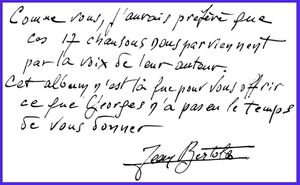 Comme vous, j'aurais préféré que
ces 17 chansons nous parviennent
par la voix de leur auteur.
Cet album n'est là que pour vous offrir
ce que Georges n'a pas eu le temps
de vous donner
Jean Bertola